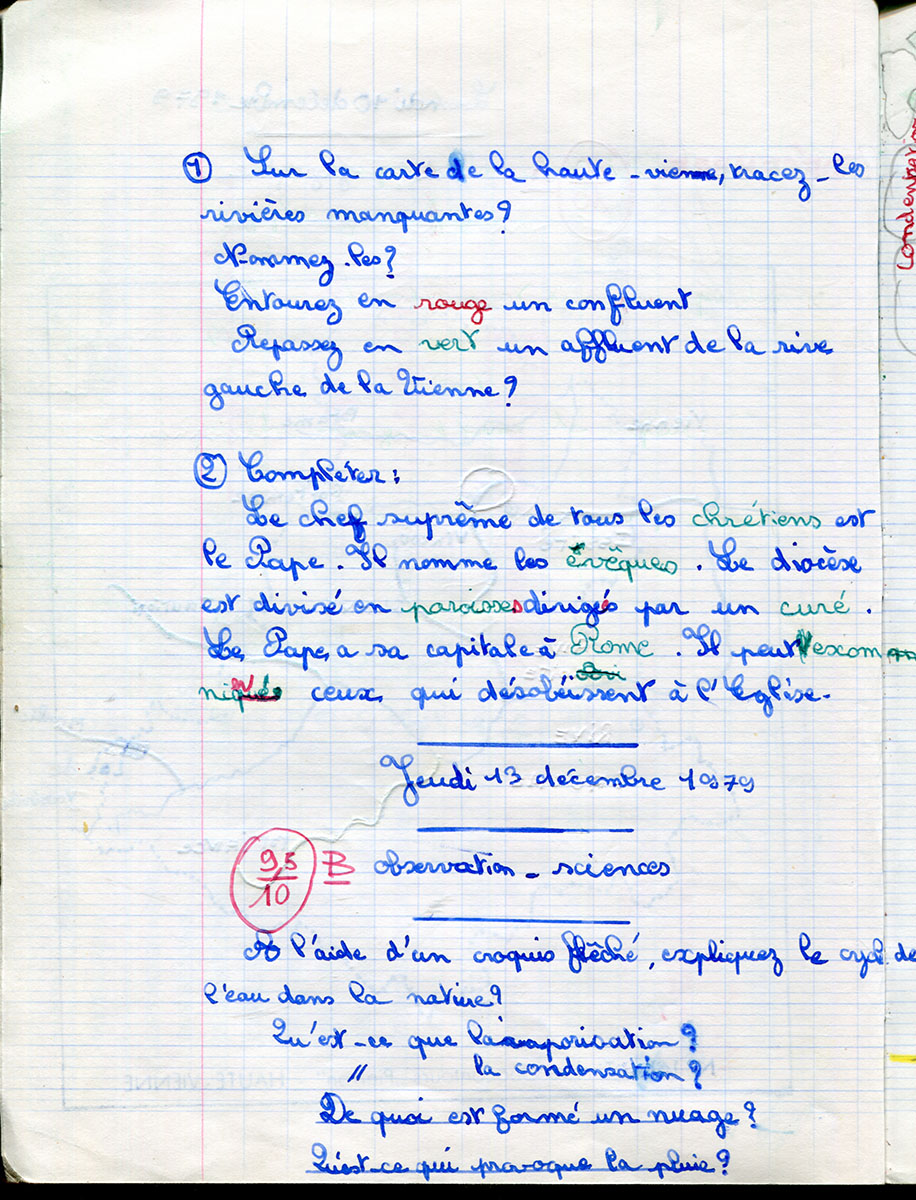 ① Sur la carte de la haute-vienne, tracez-les
rivières manquantes?
Nommez-les?
Entourez en rouge un confluent
Repassez en vert un affluent de la rive
gauche de la Vienne?
② Compléter:
Le chef suprême de tous les chrétiens est
le Pape. Il nomme les évêques. Le diocèse
est divisé en paroisses dirigés par un curé.
Le Pape a sa capitale à Rome. Il peut exom
niqués ceux qui désobéissent à l'Eglise.
Jeudi 13 décembre 1979
9,5/10 B observation - sciences
A l'aide d'un croquis flêché, expliquez le cycle de
l'eau dans la nature?
Qu'est-ce que la vaporisation?
" la condensation?
De quoi est formé un nuage?
Qu'est-ce qui provoque la pluie?